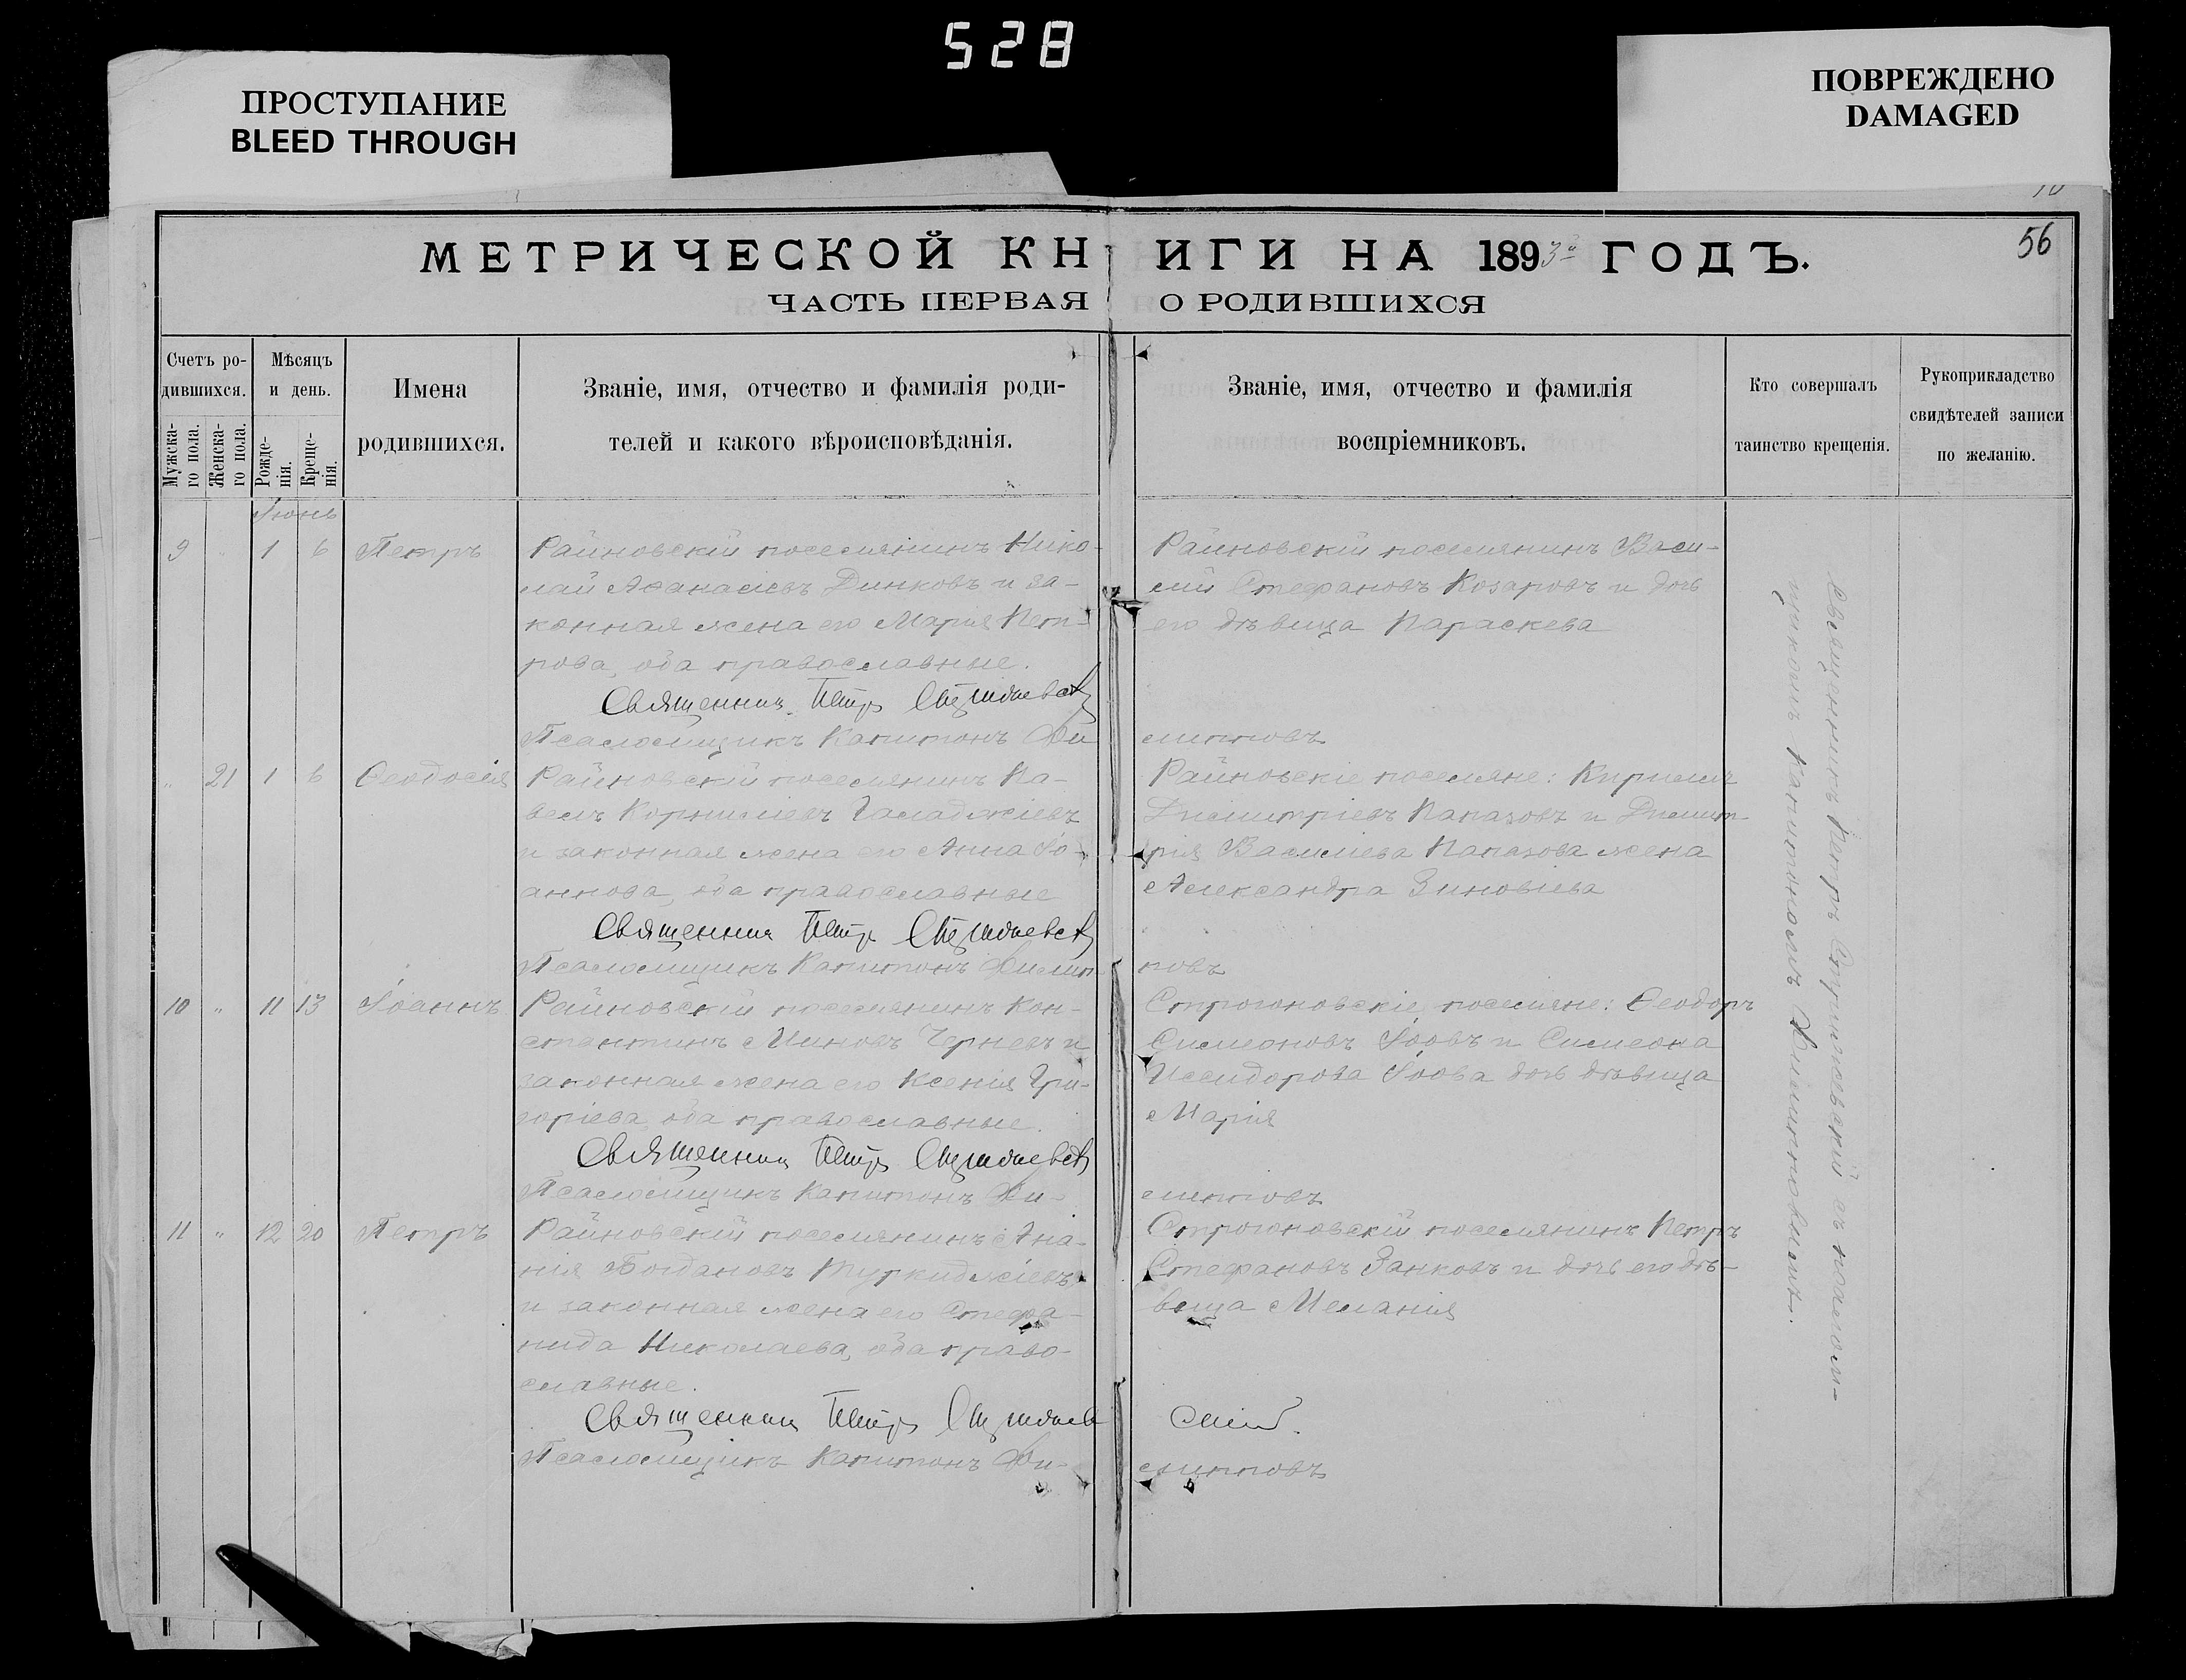 528
ПРОСТУПАНИЕ
BLEED THROUGH
ПОВРЕЖДЕНО
DAMAGED
56
МЕТРИЧЕСКОЙ КНИГИ НА 1893й ГОДЪ.
ЧАСТЬ ПЕРВАЯ О РОДИВШИХСЯ
Счетъ ро-
дившихся.
Мужска-
го пола.
Женска-
го пола.
Мѣсяцъ
и день.
Рожде-
нія.
Креще-
нія.
Имена
родившихся.
Званіе, имя, отчество и фамилія роди-
телей и какого вѣроисповѣданія.
Званіе, имя, отчество и фамилія
воспріемниковъ.
Кто совершалъ
таинство крещенія.
Рукоприкладство
свидѣтелей записи
по желанію.
Іюнь
9 " 1 6 Петръ
Райновскій поселянинъ Нико-
лай Аѳанасіевъ Динковъ и за-
конная жена его Марія Пет-
рова, оба православные.
Священник Петръ
Псаломщикъ Капитонъ Фи
липповъ
Райновскій поселянинъ Васи-
лій Стефановъ Козаровъ и дочь
его дѣвица Параскева
" 21 1 6 Ѳеодосія
Райновскій поселянинъ Па-
велъ Корниліевъ Галаджіевъ
и законная жена его Анна Іо-
аннова, оба православные
Священник Петръ
Псаломщикъ Капитонъ Филип
повъ
Райновскіе поселяне: Кириллъ
Димитріевъ Папазовъ и Димит-
рія Василіева Папазова жена
Александра Зиновіева
10 " 11 13 Іоаннъ
Райновскій поселянинъ Кон-
стантинъ Миновъ Черневъ и
законная жена его Ксенія Гри-
горіева, оба православные.
Священник Петръ
Псаломщикъ Капитонъ Фи-
липповъ
Строгоновскіе поселяне: Ѳеодоръ
Симеоновъ Іововъ и Симеона
Исидорова Іова дочь дѣвица
Марія
11 " 12 20 Петръ
Райновскій поселянинъ Ана-
нія Богдановъ
и законная жена его Стефа-
нида Николаева, оба право-
славные.
Священник Петръ
Псаломщикъ Капитонъ Фи-
липповъ
Строгоновскій поселянинъ Петръ
Стефановъ Занковъ и дочь его дѣ-
вица Меланія
Священникъ Петръ съ псалом-
щикомъ Капитономъ Филипповымъ.